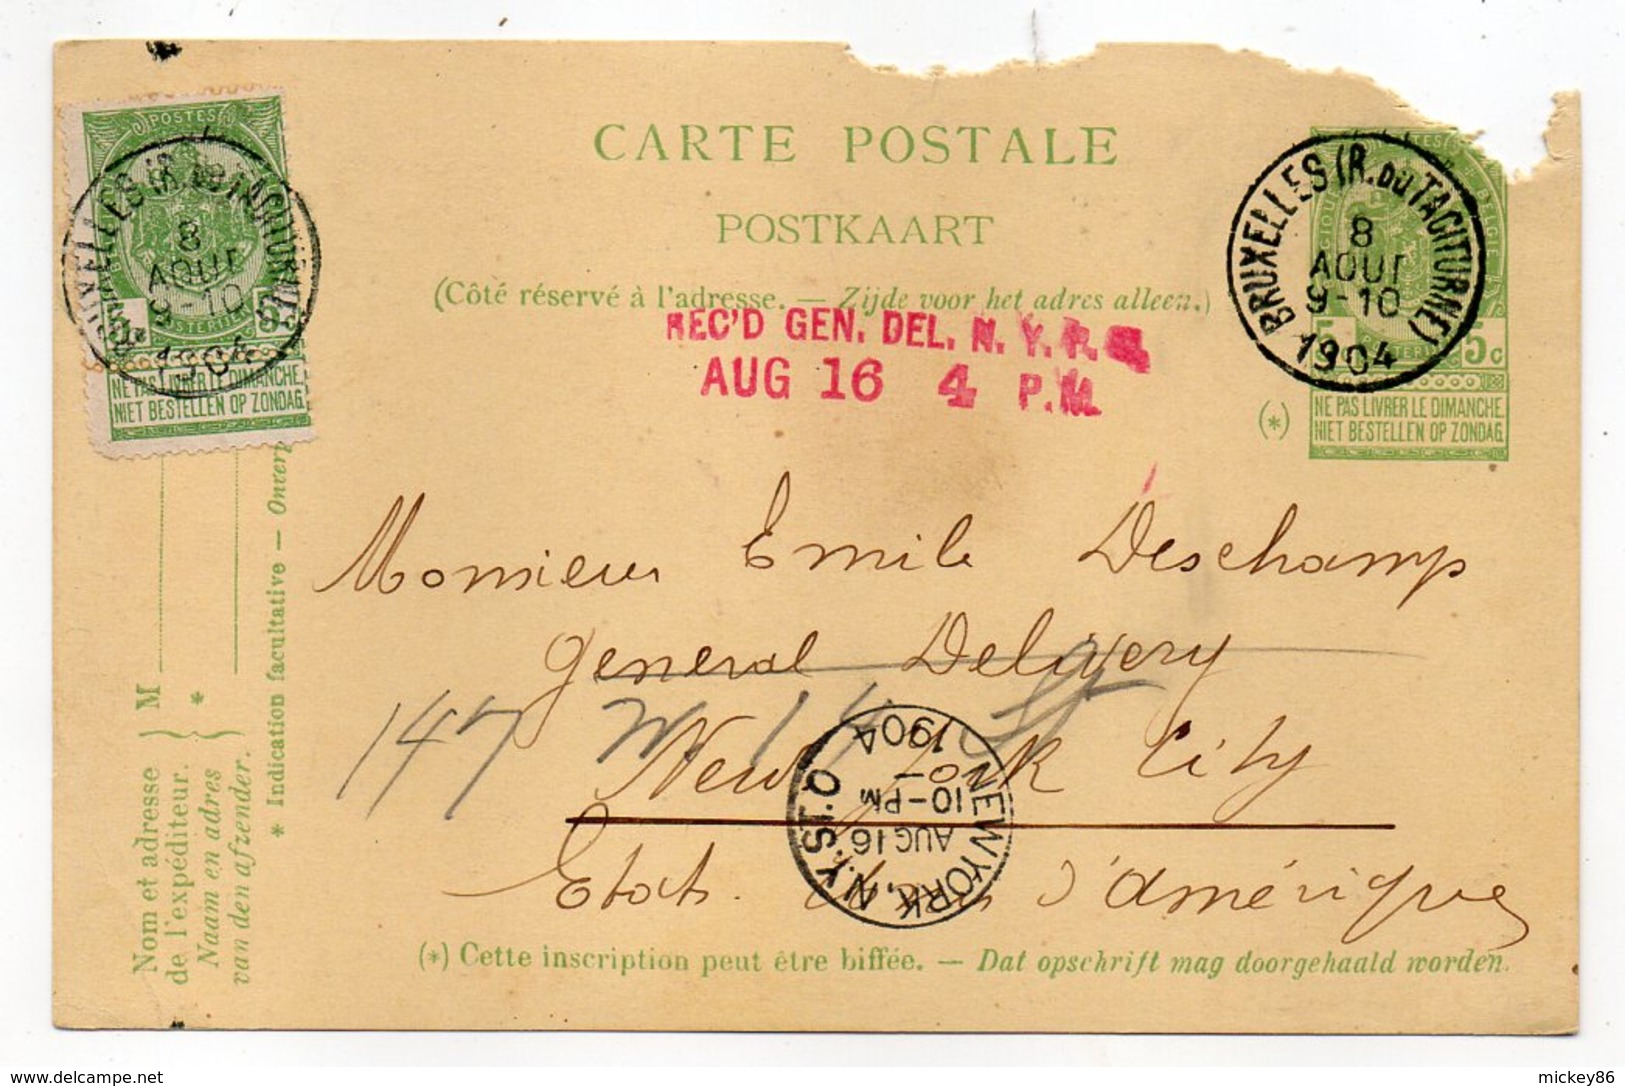 CARTE POSTALE
POSTKAART
(Côté réservé à l'adresse. — Zijde voor het adres alleen.)
REC'D GEN. DEL. N. Y. P. O.
AUG 16 4 P.M.
POSTES
BRUXELLES (R. DU TACITURNE)
8
AOUT
9-10
1904
5c
NE PAS LIVRER LE DIMANCHE.
NIET BESTELLEN OP ZONDAG.
BRUXELLES (R. DU TACITURNE)
8
AOUT
9-10
1904
BELGIE
5c
(*)
NE PAS LIVRER LE DIMANCHE.
NIET BESTELLEN OP ZONDAG.
Monsieur Emile Deschamp
General Delivery
147 W. 14 St
New York City
Etats Unis d'Amérique
NEW YORK, N.Y. STA. O
AUG 16
10-PM
1904
(*) Cette inscription peut être biffée. — Dat opschrift mag doorgehaald worden.
Nom et adresse
de l'expéditeur.
Naam en adres
van den afzender.
} M
} *
* Indication facultative —
delcampe.net
mickey86